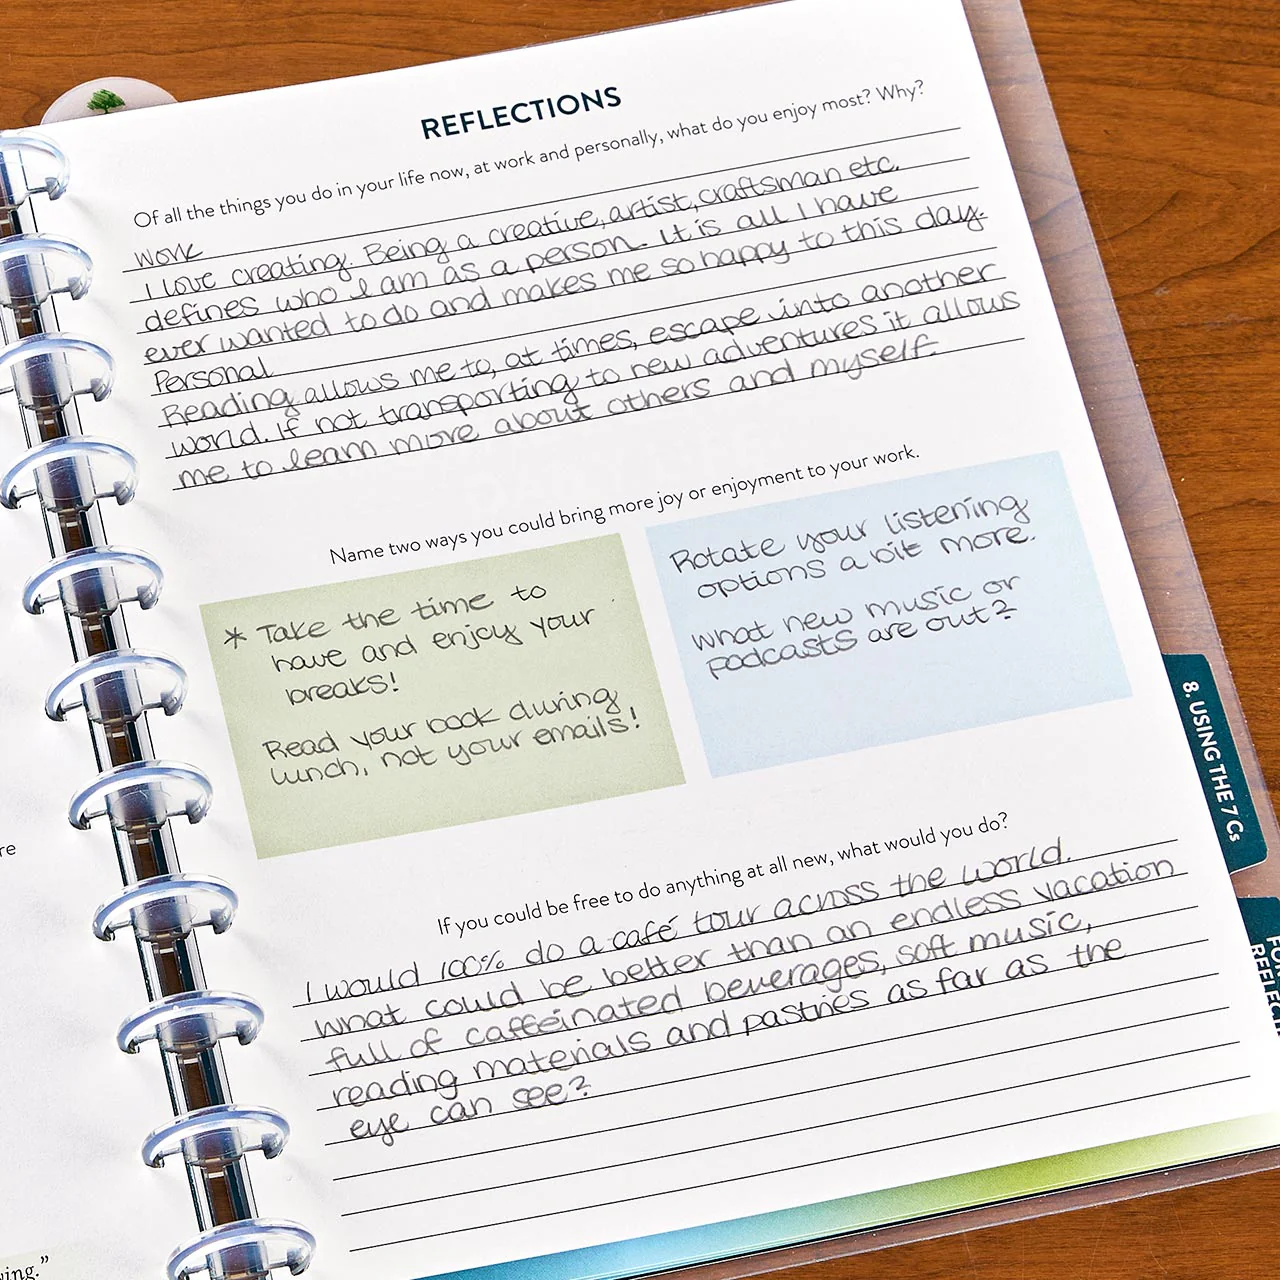 REFLECTIONS
Of all the things you do in your life now, at work and personally, what do you enjoy most? Why?
work
I love creating. Being a creative, artist, craftsman etc.
defines who I am as a person. It is all I have
ever wanted to do and makes me so happy to this day.
Personal
Reading allows me to, at times, escape into another
world. If not transporting to new adventures it allows
me to learn more about others and myself.
Name two ways you could bring more joy or enjoyment to your work.
* Take the time to
have and enjoy your
breaks!
Read your book during
lunch, not your emails!
Rotate your listening
options a bit more.
what new music or
podcasts are out?
If you could be free to do anything at all new, what would you do?
I would 100% do a café tour across the world.
what could be better than an endless vacation
full of caffeinated beverages, soft music,
reading materials and pastries as far as the
eye can see?
8. USING THE 7 Cs